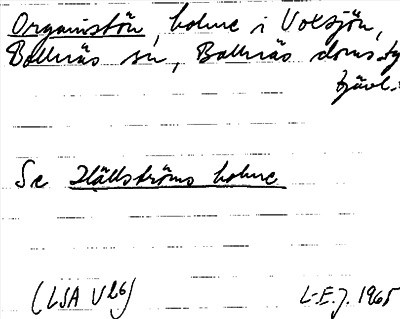 Organistön, holme i Voxsjön,
Bollnäs sn, Bollnäs doms.,
Gävl.
Se Hällströms holme
(LSA V26) L-E.J. 1965